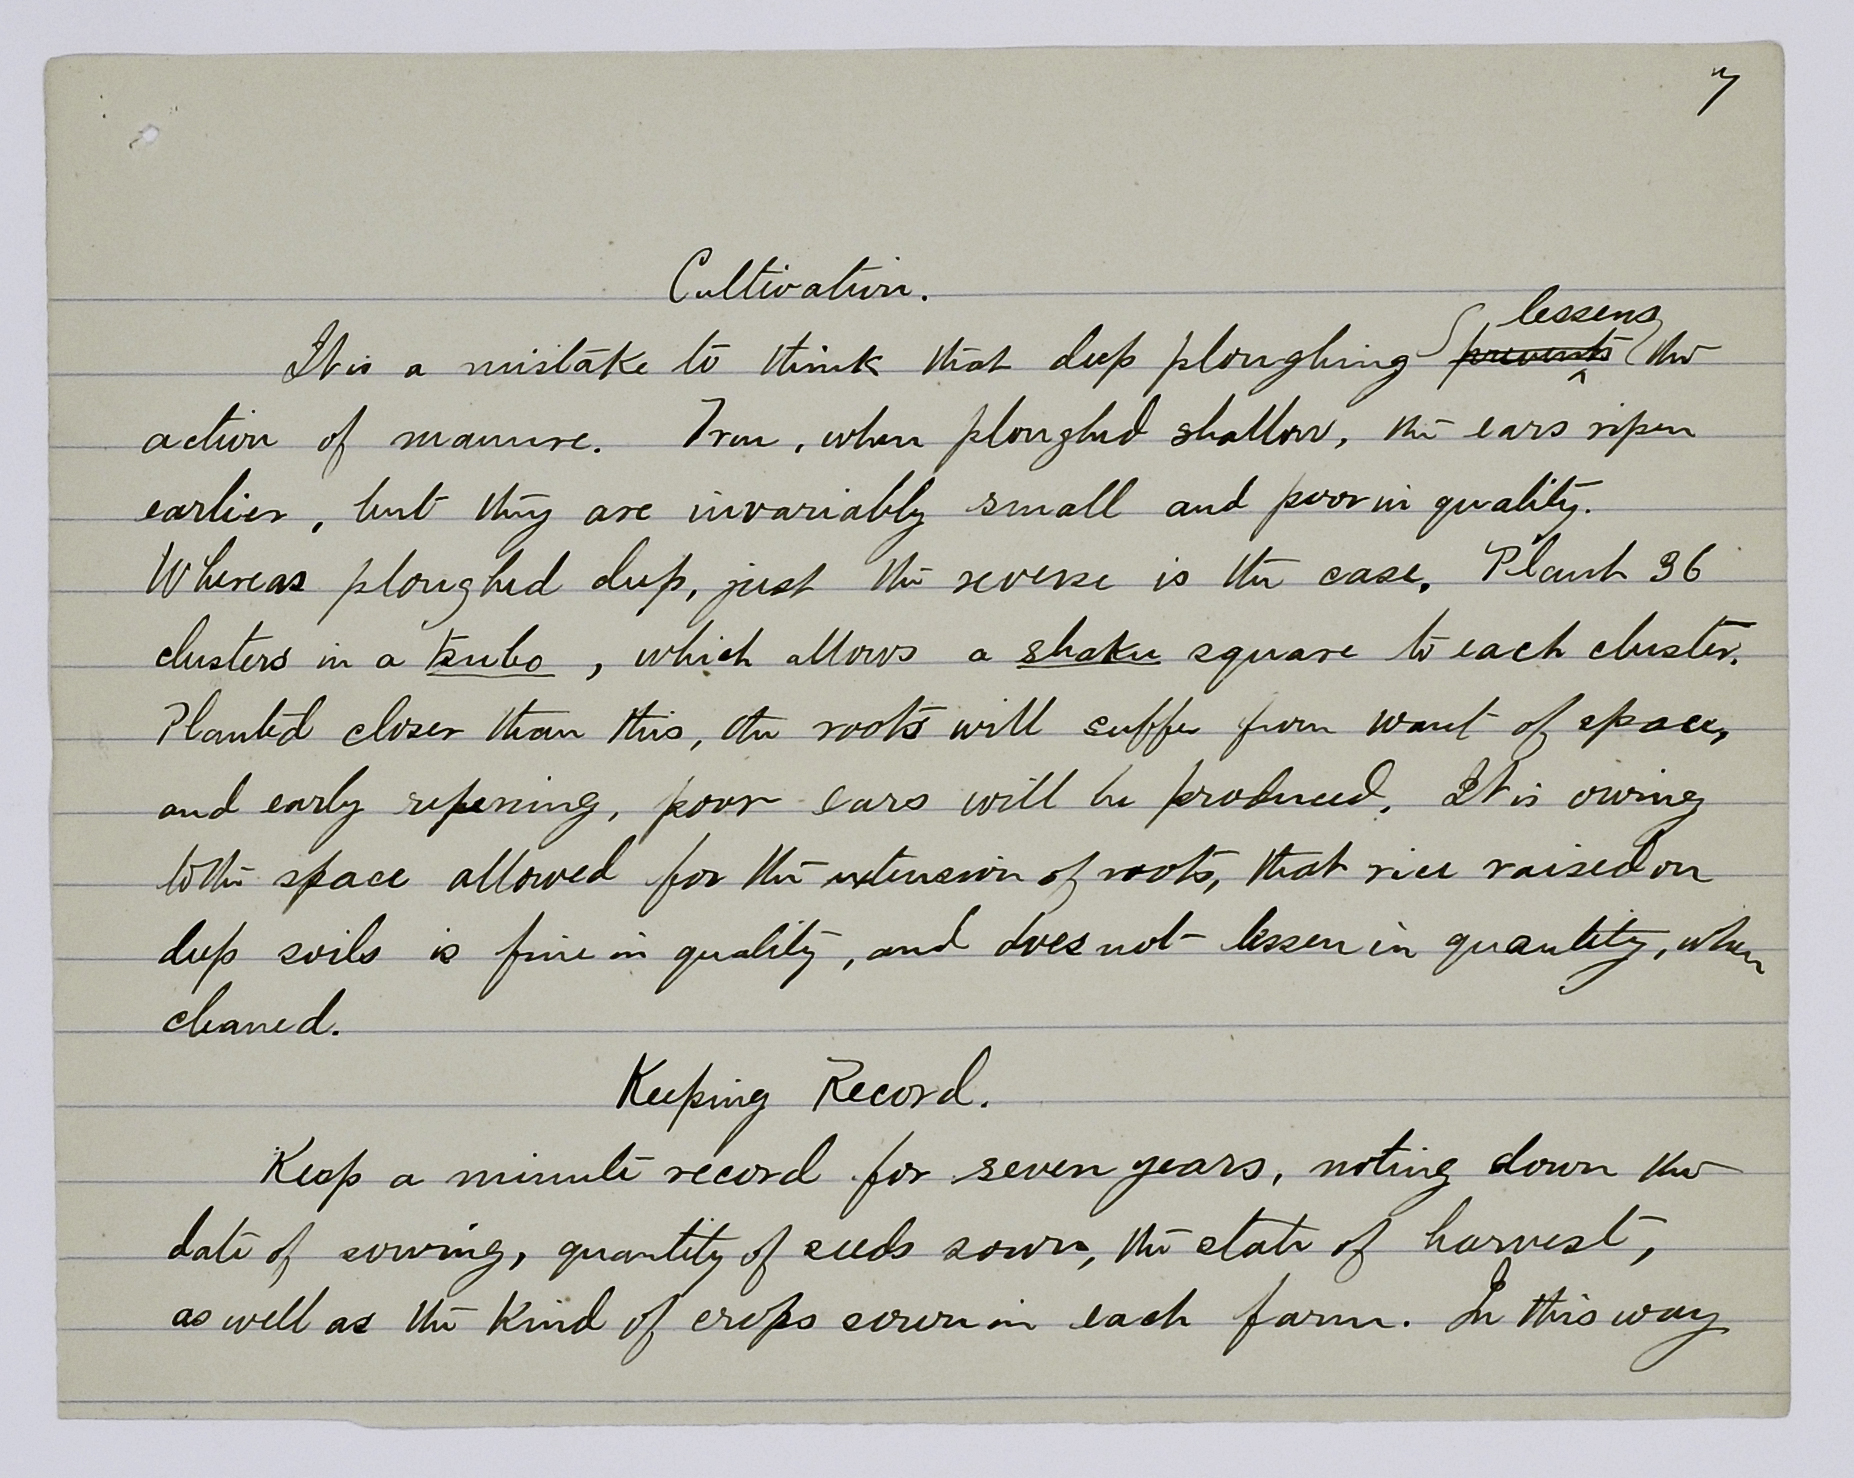 7
Cultivation.
It is a mistake to think that deep ploughing prevents lessens the
action of manure. True, when ploughed shallow, the ears ripen
earlier, but they are invariably small and poor in quality.
Whereas ploughed deep, just the reverse is the case. Plant 36
clusters in a tsubo, which allows a shaku square to each cluster.
Planted closer than this, the roots will suffer from want of space,
and early ripening, poor ears will be produced. It is owing
to the space allowed for the extension of roots, that rice raised on
deep soils is fine in quality, and does not lessen in quantity, when
cleaned.
Keeping Record.
Keep a minute record for seven years, noting down the
date of sowing, quantity of seeds sown, the state of harvest,
as well as the kind of crops sown in each farm. In this way